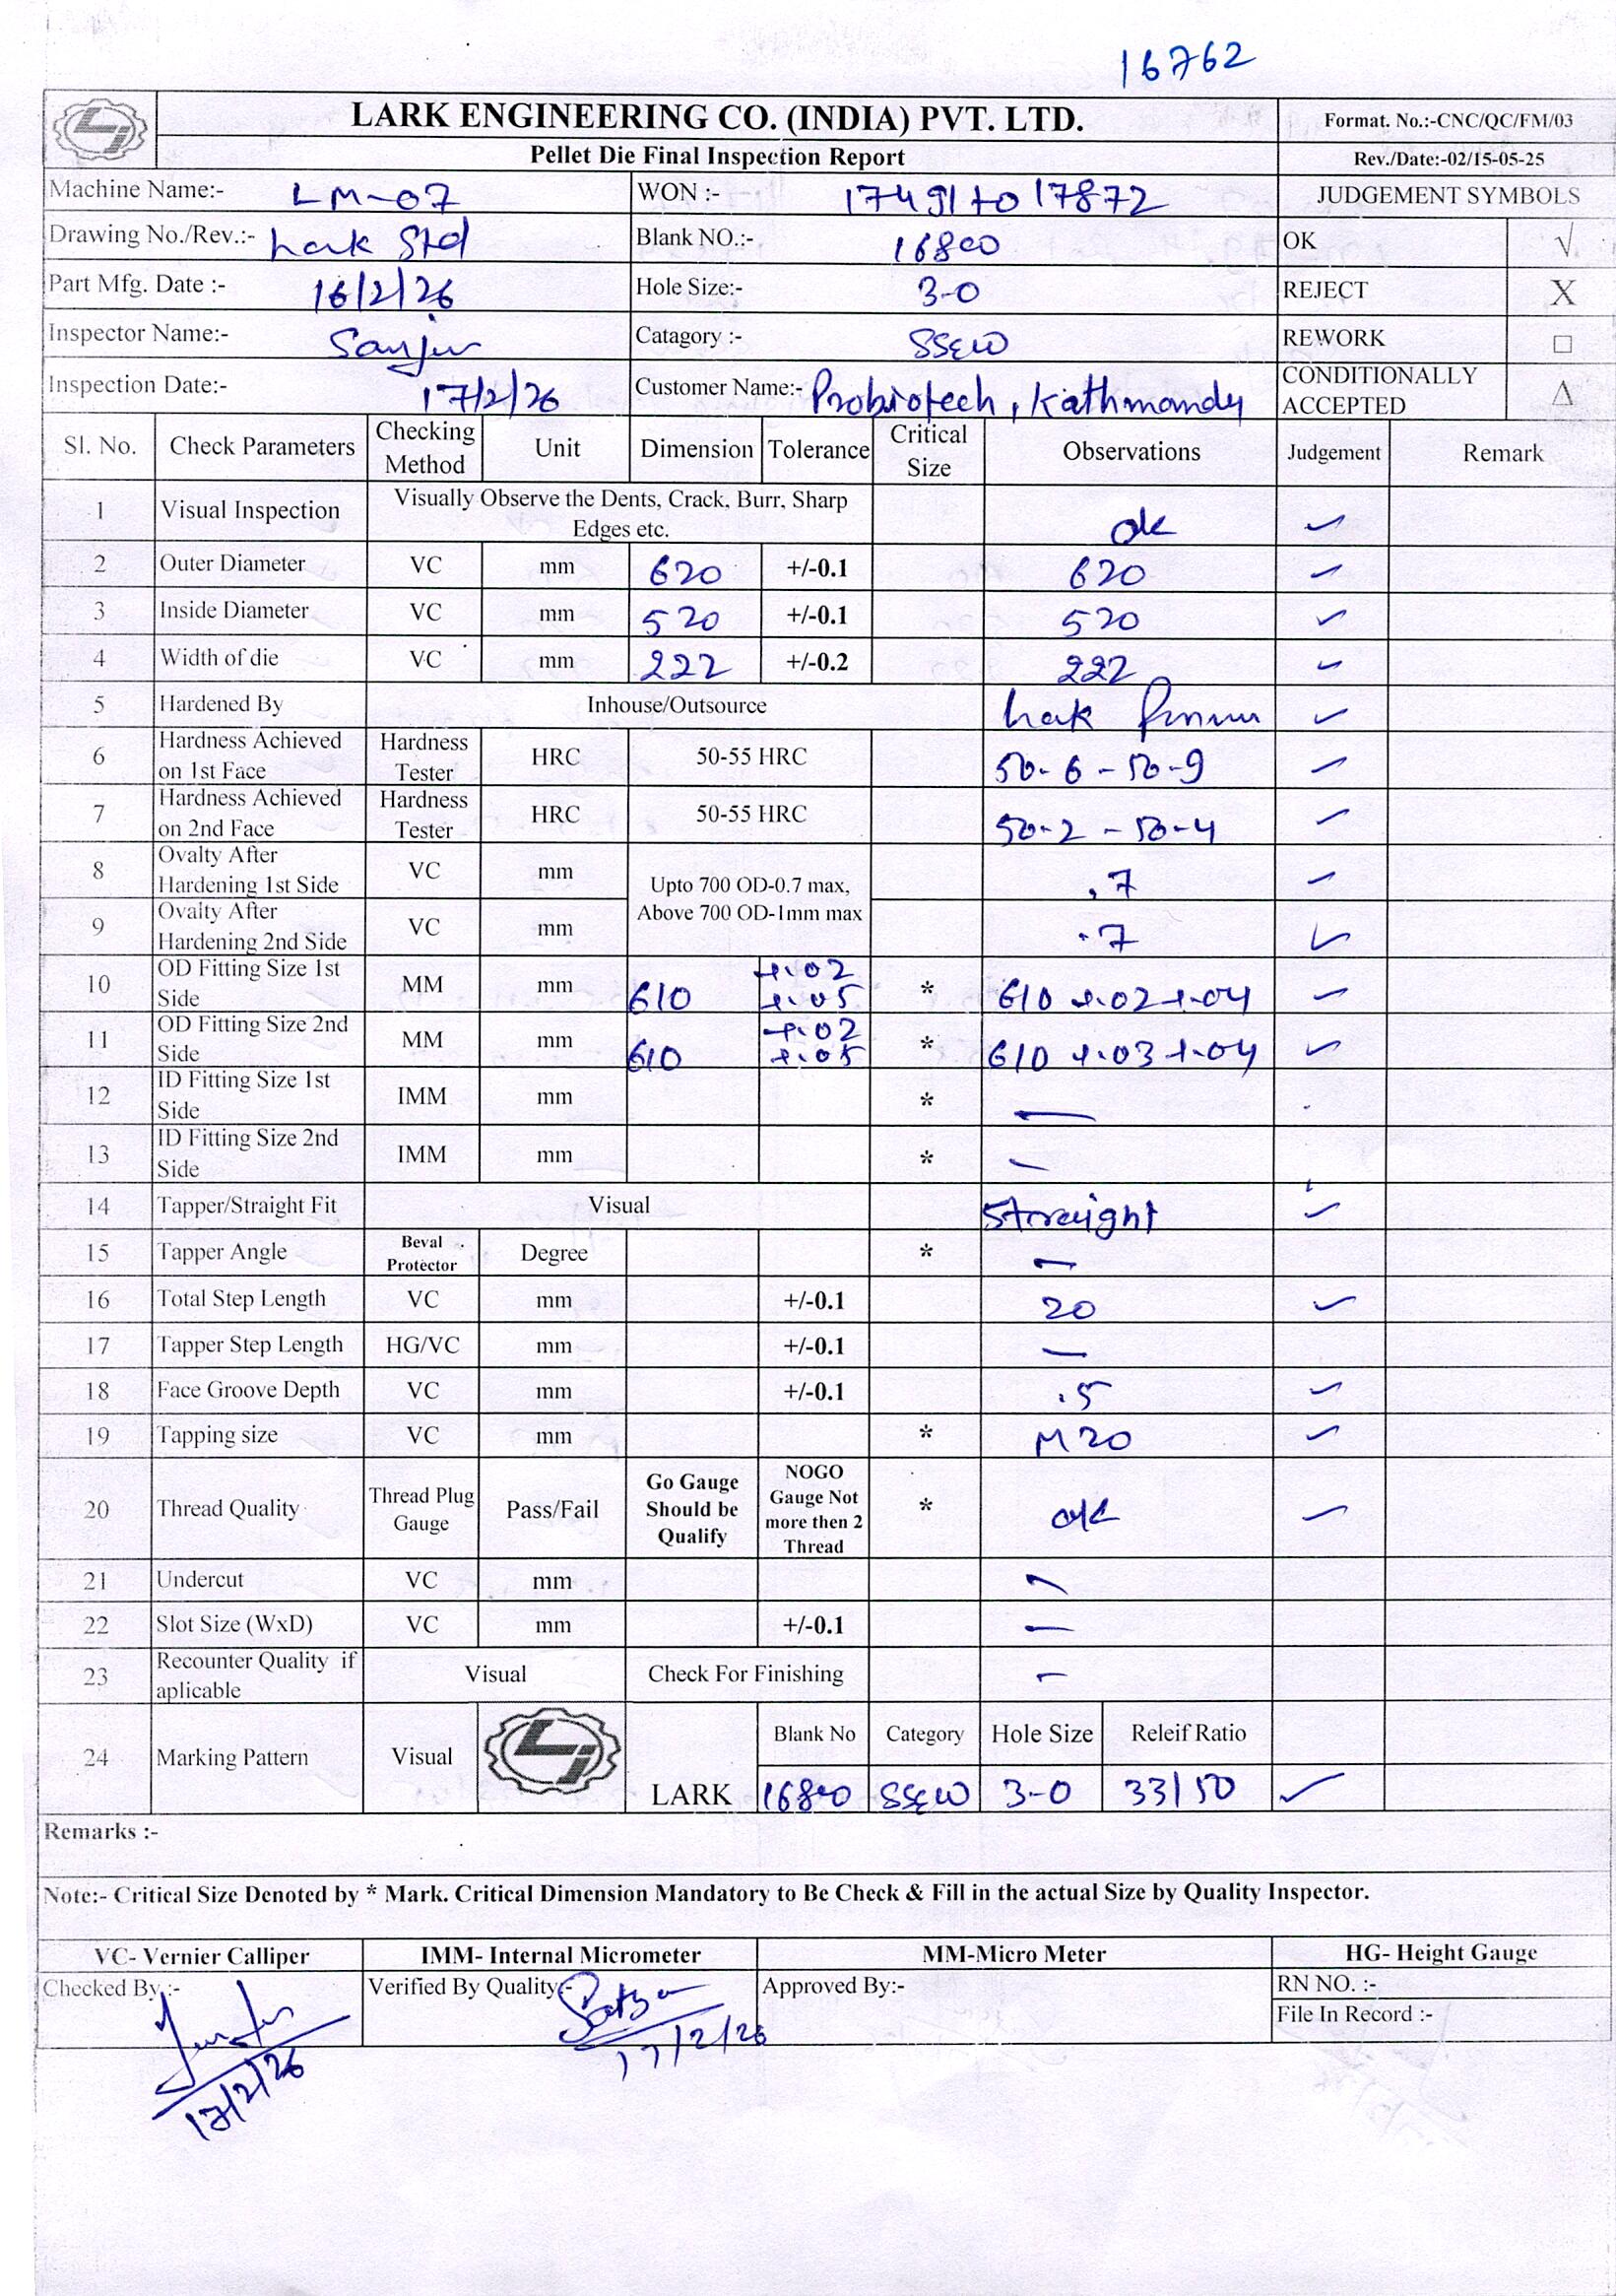 16762
LARK ENGINEERING CO. (INDIA) PVT. LTD.
Format. No.:-CNC/QC/FM/03
Pellet Die Final Inspection Report
Rev./Date:-02/15-05-25
Machine Name:- LM-07 WON :- 17491 to 17872 JUDGEMENT SYMBOLS
Drawing No./Rev.:- Lark Std Blank NO.:- 16800 OK √
Part Mfg. Date :- 16/2/26 Hole Size:- 3-0 REJECT X
Inspector Name:- Sanjiv Catagory :- SSEW REWORK □
Inspection Date:- 17/2/26 Customer Name:- Probiotech, Kathmandu CONDITIONALLY ACCEPTED Δ
Sl. No. Check Parameters Checking Method Unit Dimension Tolerance Critical Size Observations Judgement Remark
1 Visual Inspection Visually Observe the Dents, Crack, Burr, Sharp Edges etc. ok ✓
2 Outer Diameter VC mm 620 +/-0.1 620 ✓
3 Inside Diameter VC mm 520 +/-0.1 520 ✓
4 Width of die VC mm 222 +/-0.2 222 ✓
5 Hardened By Inhouse/Outsource Lark ✓
6 Hardness Achieved on 1st Face Hardness Tester HRC 50-55 HRC 50-6 - 50-9 ✓
7 Hardness Achieved on 2nd Face Hardness Tester HRC 50-55 HRC 50-2 - 50-4 ✓
8 Ovalty After Hardening 1st Side VC mm Upto 700 OD-0.7 max, Above 700 OD-1mm max .7 ✓
9 Ovalty After Hardening 2nd Side VC mm .7 ✓
10 OD Fitting Size 1st Side MM mm 610 +.02 +.05 * 610 +.02 +.04 ✓
11 OD Fitting Size 2nd Side MM mm 610 +.02 +.05 * 610 +.03 +.04 ✓
12 ID Fitting Size 1st Side IMM mm * —
13 ID Fitting Size 2nd Side IMM mm * —
14 Tapper/Straight Fit Visual Straight ✓
15 Tapper Angle Beval Protector Degree * —
16 Total Step Length VC mm +/-0.1 20 ✓
17 Tapper Step Length HG/VC mm +/-0.1 —
18 Face Groove Depth VC mm +/-0.1 .5 ✓
19 Tapping size VC mm * M20 ✓
20 Thread Quality Thread Plug Gauge Pass/Fail Go Gauge Should be Qualify NOGO Gauge Not more then 2 Thread * ok ✓
21 Undercut VC mm —
22 Slot Size (WxD) VC mm +/-0.1 —
23 Recounter Quality if aplicable Visual Check For Finishing —
24 Marking Pattern Visual LARK Blank No Category Hole Size Releif Ratio
16800 SSEW 3-0 33/50 ✓
Remarks :-
Note:- Critical Size Denoted by * Mark. Critical Dimension Mandatory to Be Check & Fill in the actual Size by Quality Inspector.
VC- Vernier Calliper IMM- Internal Micrometer MM-Micro Meter HG- Height Gauge
Checked By :- Verified By Quality:- Satya Approved By:- RN NO. :-
File In Record :-
17/2/26 17/2/26